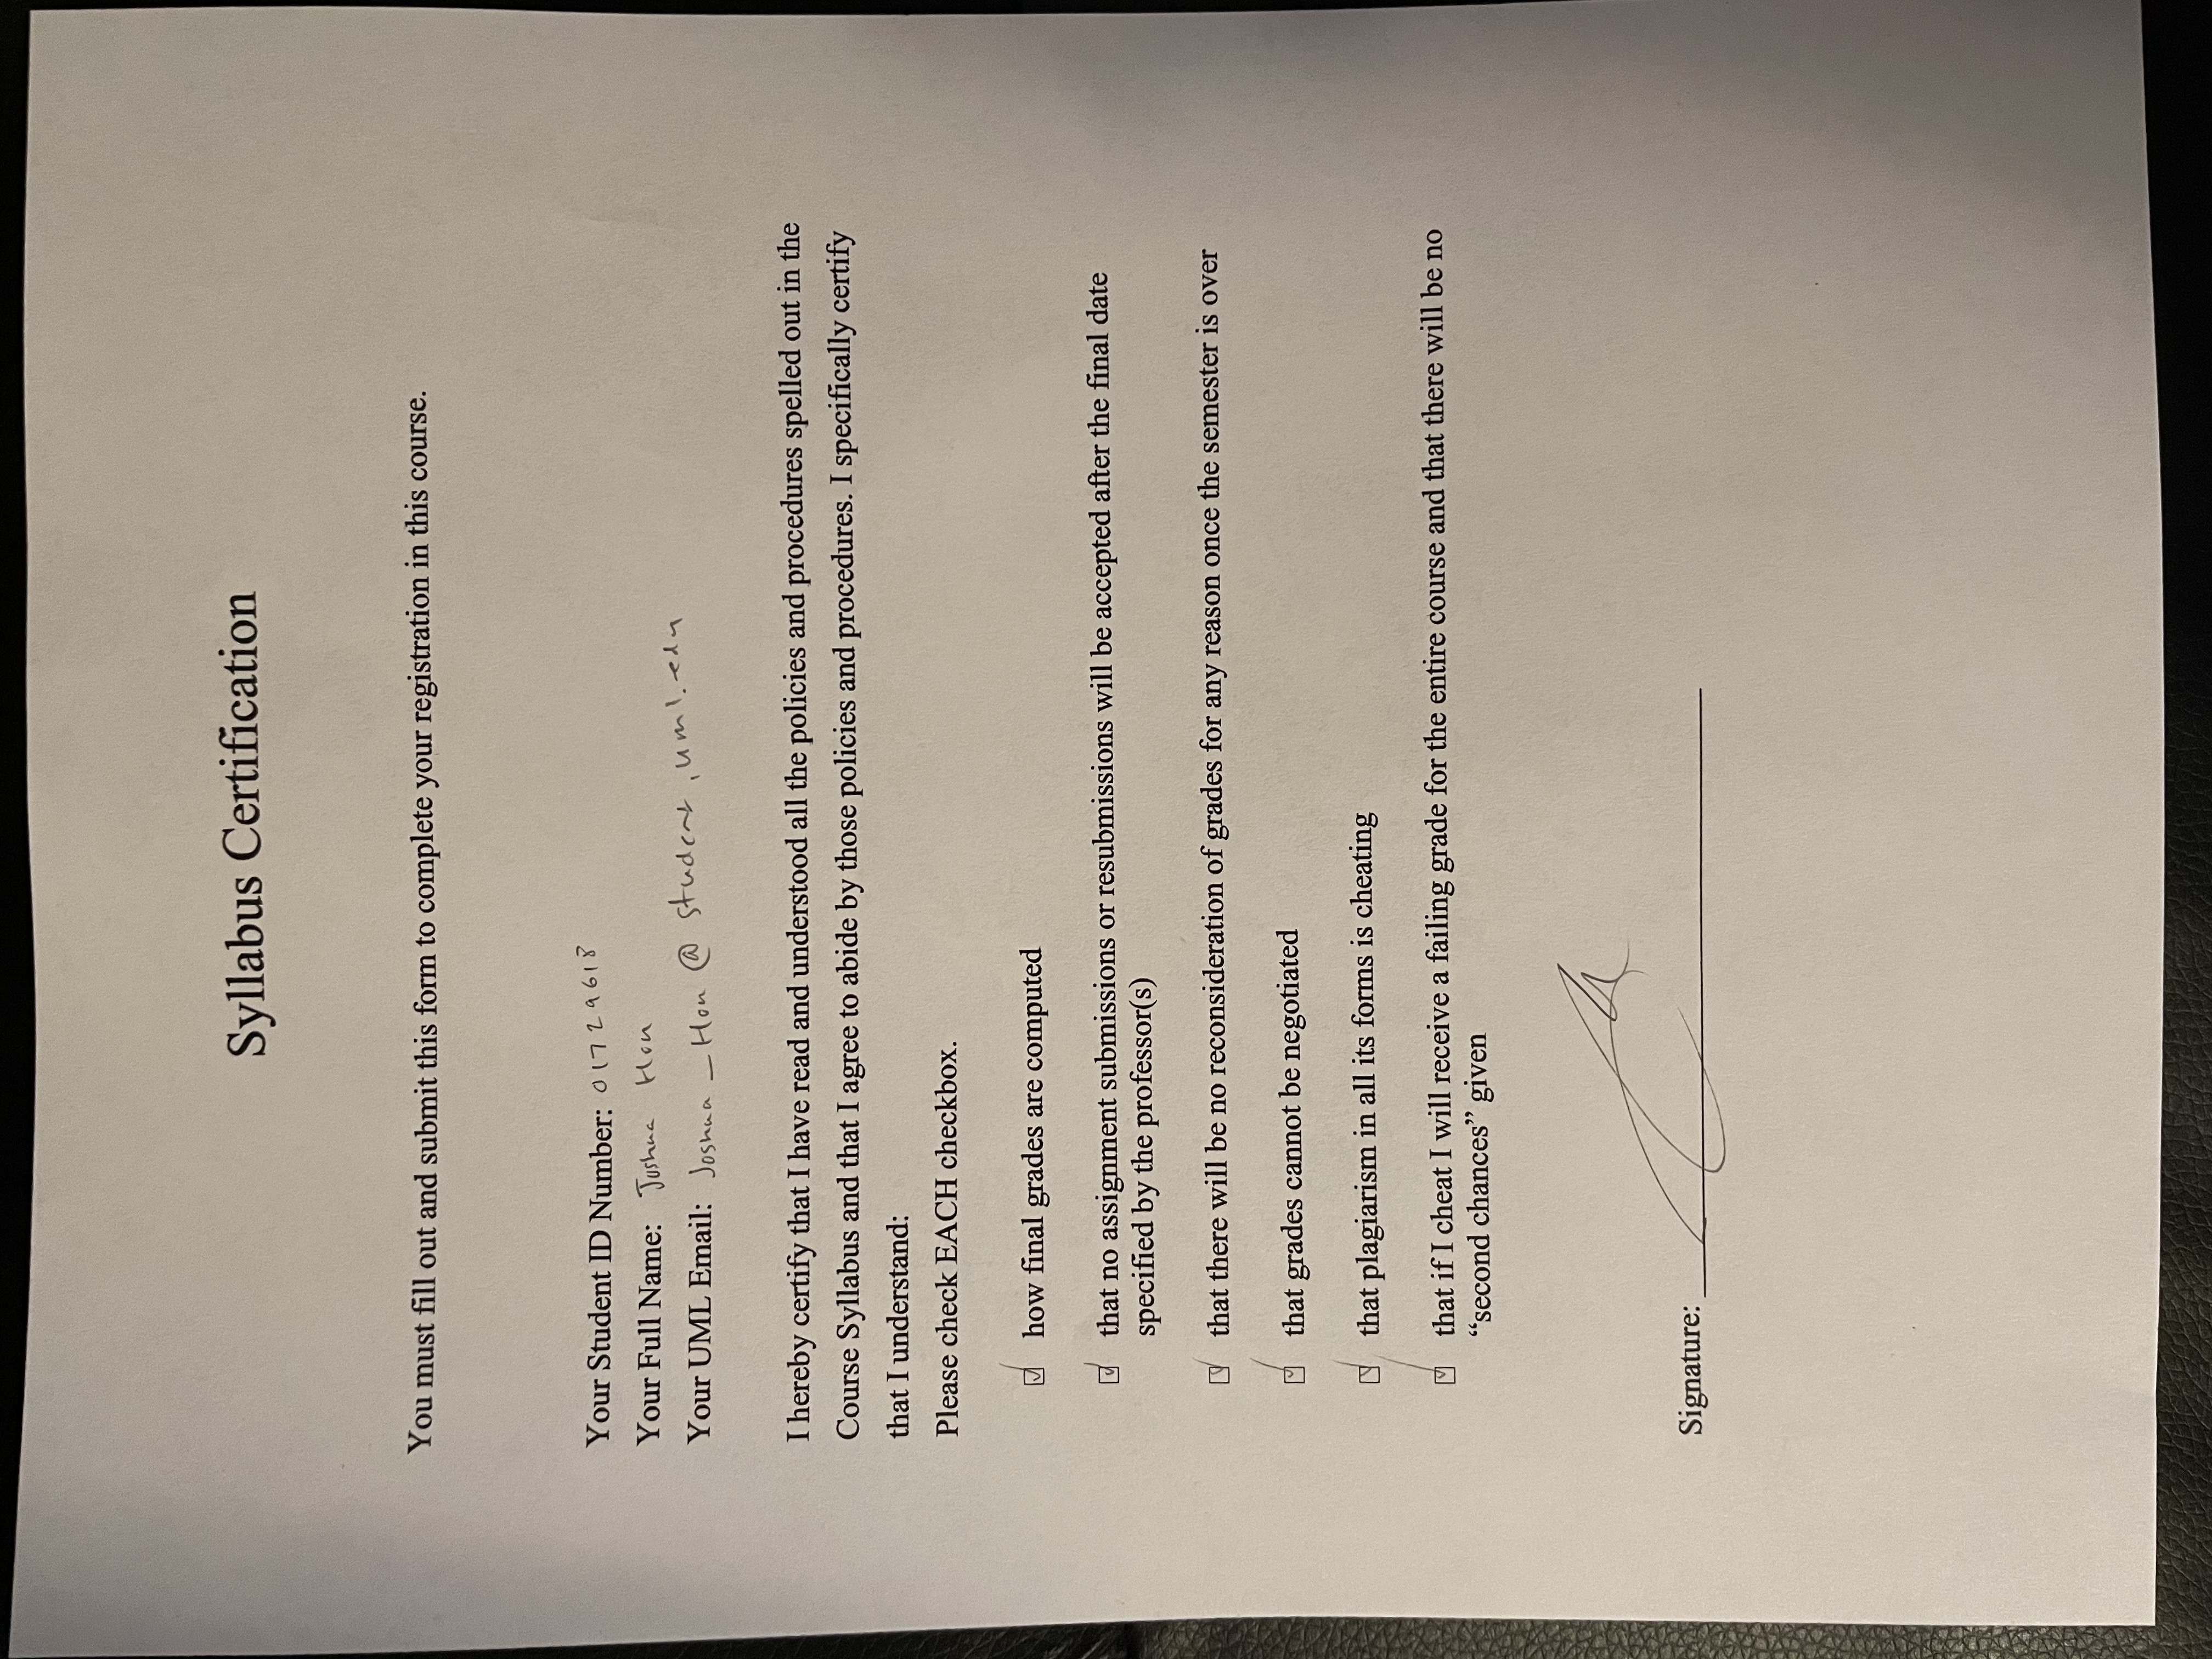 Syllabus Certification
You must fill out and submit this form to complete your registration in this course.
Your Student ID Number: 01729618
Your Full Name: Joshua Hon
Your UML Email: Joshua_Hon@student.uml.edu
I hereby certify that I have read and understood all the policies and procedures spelled out in the
Course Syllabus and that I agree to abide by those policies and procedures. I specifically certify
that I understand:
Please check EACH checkbox.
☑ how final grades are computed
☑ that no assignment submissions or resubmissions will be accepted after the final date
specified by the professor(s)
☑ that there will be no reconsideration of grades for any reason once the semester is over
☑ that grades cannot be negotiated
☑ that plagiarism in all its forms is cheating
☑ that if I cheat I will receive a failing grade for the entire course and that there will be no
“second chances” given
Signature: